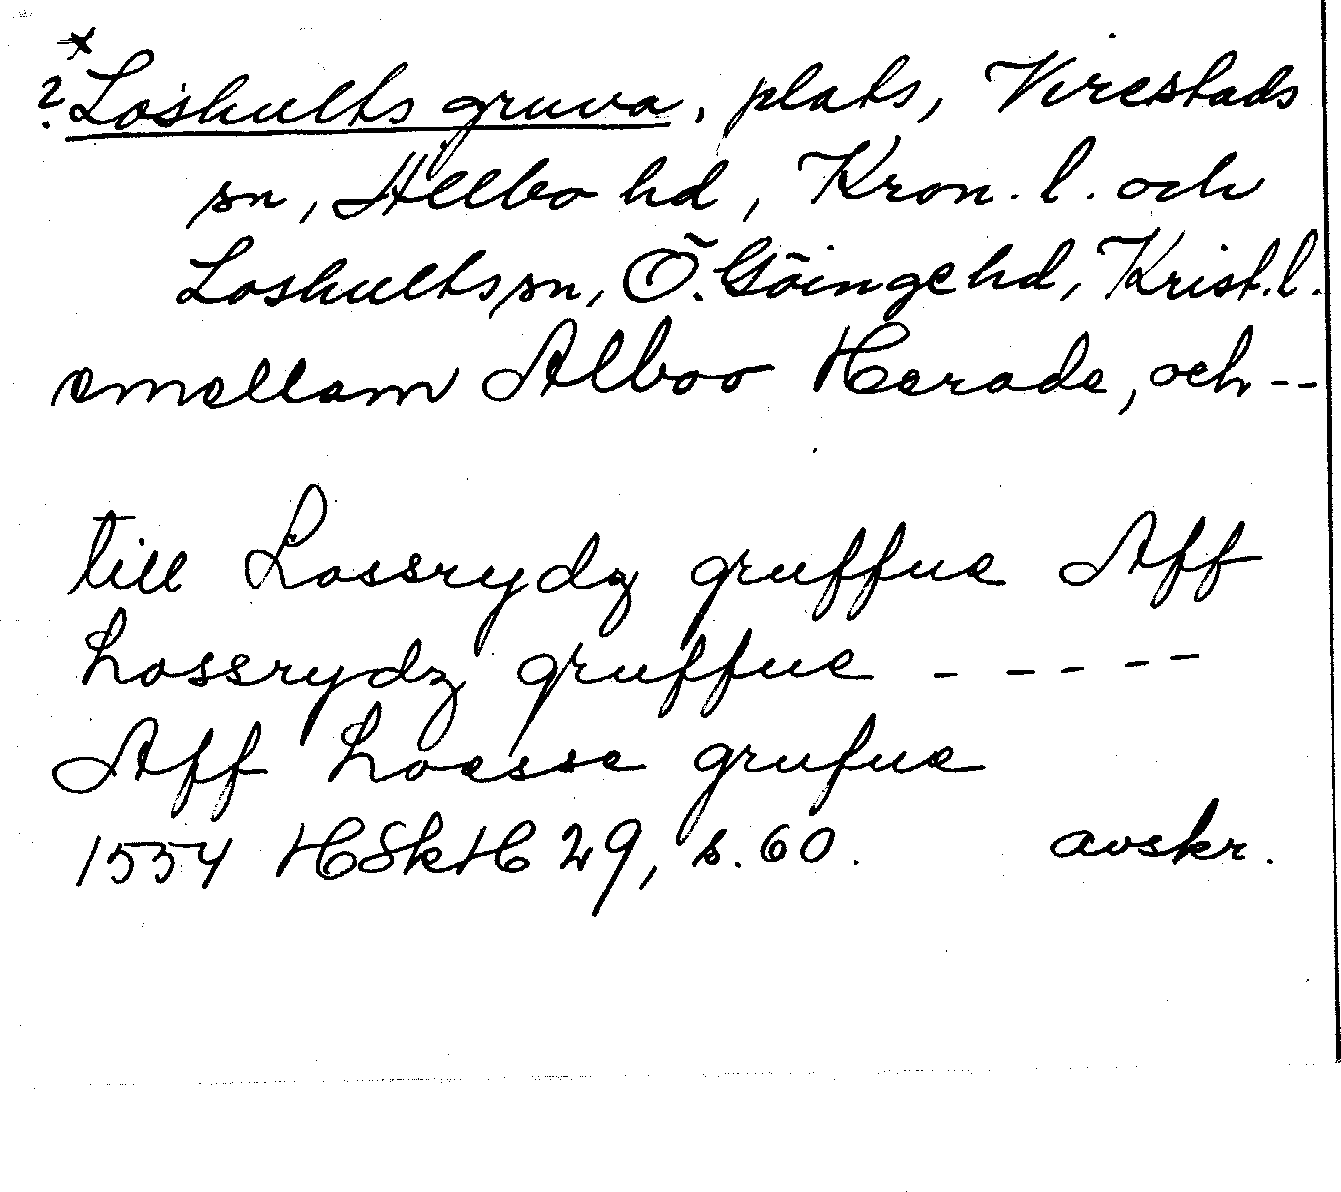 ?*Loshults gruva, plats, Virestads
sn, Allbo hd, Kron. l. och
Loshults sn, Ö. Göinge hd, Krist. l.
emellam Alboo Herade, och --
till Lossrydz gruffue Aff
Lossrydz gruffue - - - - -
Aff Loesse grufue
1554 HSkH 29, s. 60. avskr.